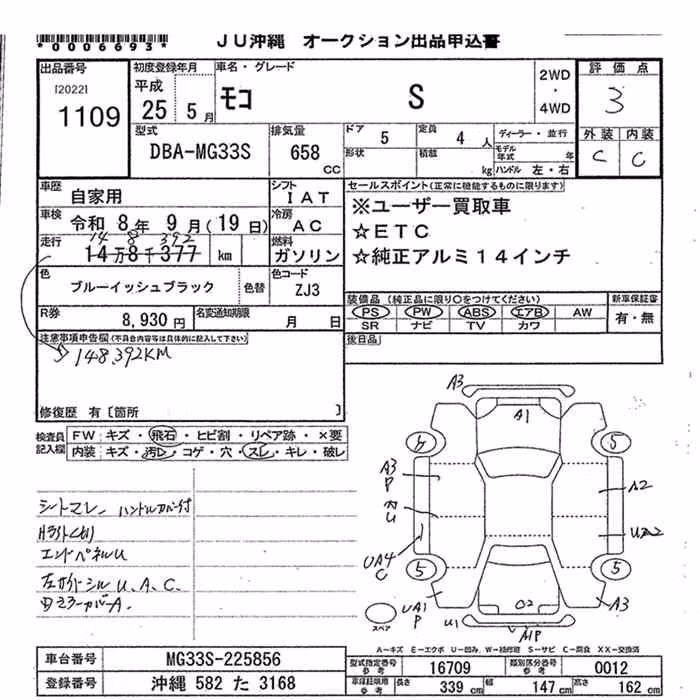 *0006693* JU沖縄 オークション出品申込書
出品番号 [2022] 1109
初度登録年月 平成 25年 5月
車名・グレード モコ S
2WD・4WD
評価点 3
外装 C 内装 C
型式 DBA-MG33S
排気量 658 CC
ドア 5 定員 4人
形状 積載 kg
ディーラー・並行
モデル年式 年
ハンドル 左・右
車歴 自家用
シフト IAT
車検 令和 8年 9月(19日)
冷房 AC
走行 14 8 392
14万8千377 km
燃料 ガソリン
色 ブルーイッシュブラック 色替
色コード ZJ3
R券 8,930円
名変通知期限 月 日
セールスポイント(正常に機能するものに限ります)
※ユーザー買取車
☆ETC
☆純正アルミ14インチ
装備品(純正品に限り○をつけてください)
PS PW ABS エアB AW
SR ナビ TV カワ
新車保証書 有・無
後日品
注意事項申告欄(不具合内容等は具体的に記入して下さい)
148,392KM
修復歴 有[箇所 ]
検査員記入欄
FW キズ・飛石・ヒビ割・リペア跡・×要
内装 キズ・汚レ・コゲ・穴・スレ・キレ・破レ
シートスレ、ハンドルカバー付
エンドパネルU
左サイドシルU、A、C、
ミラーカバーA、
A3
A1
5
A3
P
A2
U
UA4
C
5
5
UA1
P
C2
A3
U1
スペア
A-キズ E-エクボ U-凹み W-補修跡 S-サビ C-腐食 XX-交換済
車台番号 MG33S-225856
登録番号 沖縄 582 た 3168
型式指定番号 参考 16709
類別区分番号 参考 0012
車庫証明用 参考 長 339 cm 幅 147 cm 高さ 162 cm